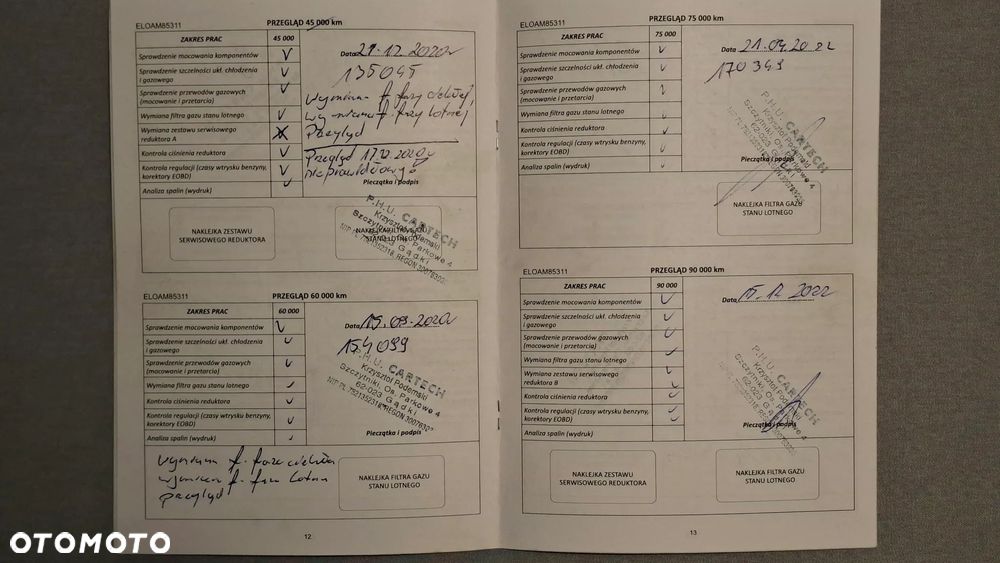 ELOAM85311
PRZEGLĄD 45 000 km
ZAKRES PRAC
45 000
Sprawdzenie mocowania komponentów
Sprawdzenie szczelności ukł. chłodzenia
i gazowego
Sprawdzenie przewodów gazowych
(mocowanie i przetarcia)
Wymiana filtra gazu stanu lotnego
Wymiana zestawu serwisowego
reduktora A
Kontrola ciśnienia reduktora
Kontrola regulacji (czasy wtrysku benzyny,
korektory EOBD)
Analiza spalin (wydruk)
Data
135045
Przegląd
Przegląd
Pieczątka i podpis
P.H.U. CARTECH
Krzysztof Podemski
Szczytniki, Os. Parkowe 4
62-023 Gądki
NAKLEJKA ZESTAWU
SERWISOWEGO REDUKTORA
NAKLEJKA FILTRA GAZU
STANU LOTNEGO
ELOAM85311
PRZEGLĄD 60 000 km
ZAKRES PRAC
60 000
Sprawdzenie mocowania komponentów
Sprawdzenie szczelności ukł. chłodzenia
i gazowego
Sprawdzenie przewodów gazowych
(mocowanie i przetarcia)
Wymiana filtra gazu stanu lotnego
Kontrola ciśnienia reduktora
Kontrola regulacji (czasy wtrysku benzyny,
korektory EOBD)
Analiza spalin (wydruk)
Data
154099
P.H.U. CARTECH
Krzysztof Podemski
Szczytniki, Os. Parkowe 4
62-023 Gądki
Pieczątka i podpis
przegląd
NAKLEJKA FILTRA GAZU
STANU LOTNEGO
12
ELOAM85311
PRZEGLĄD 75 000 km
ZAKRES PRAC
75 000
Sprawdzenie mocowania komponentów
Sprawdzenie szczelności ukł. chłodzenia
i gazowego
Sprawdzenie przewodów gazowych
(mocowanie i przetarcia)
Wymiana filtra gazu stanu lotnego
Kontrola ciśnienia reduktora
Kontrola regulacji (czasy wtrysku benzyny,
korektory EOBD)
Analiza spalin (wydruk)
Data 21.04.2022
170349
P.H.U. CARTECH
Krzysztof Podemski
Szczytniki, Os. Parkowe 4
62-023 Gądki
Pieczątka i podpis
NAKLEJKA FILTRA GAZU
STANU LOTNEGO
ELOAM85311
PRZEGLĄD 90 000 km
ZAKRES PRAC
90 000
Sprawdzenie mocowania komponentów
Sprawdzenie szczelności ukł. chłodzenia
i gazowego
Sprawdzenie przewodów gazowych
(mocowanie i przetarcia)
Wymiana filtra gazu stanu lotnego
Wymiana zestawu serwisowego
reduktora B
Kontrola ciśnienia reduktora
Kontrola regulacji (czasy wtrysku benzyny,
korektory EOBD)
Analiza spalin (wydruk)
Data 15.12.2022
P.H.U. CARTECH
Krzysztof Podemski
Szczytniki, Os. Parkowe 4
62-023 Gądki
Pieczątka i podpis
NAKLEJKA ZESTAWU
SERWISOWEGO REDUKTORA
NAKLEJKA FILTRA GAZU
STANU LOTNEGO
13
OTOMOTO